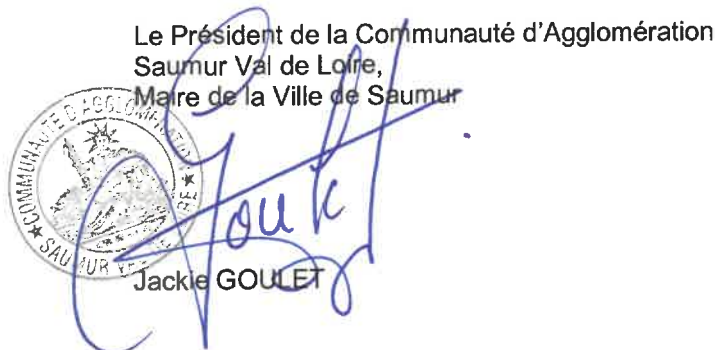 Le Président de la Communauté d'Agglomération
Saumur Val de Loire,
Maire de la Ville de Saumur
COMMUNAUTÉ D'AGGLOMÉRATION
SAUMUR
Jackie GOULET